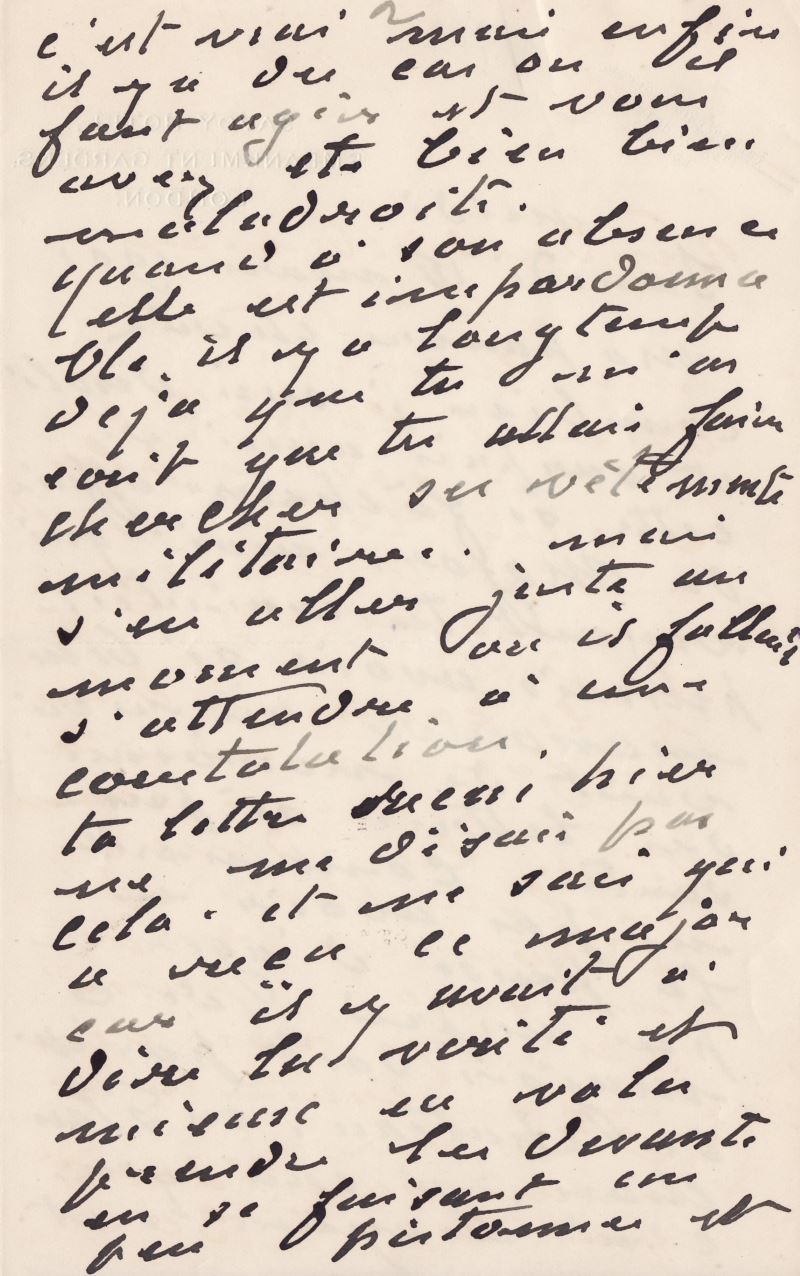 2
c'est vrai mais enfin
il y a des cas ou il
faut agir et vous
avez eté bien bien
maladroits.
quand à son absence
elle est impardonna
ble. il y a longtemps
deja que tu m'as
ecrit que tu allais faire
chercher ses vêtements
militaires. mais
s'en aller juste au
moment ou il fallait
s'attendre à une
constatation
ta lettre recu hier
ne me disais pas
cela. et ne sais qui
a recu ce major
car il y avait à
dire la verité et
mieux eu valu
prendre les devants
en se faisant un
peu pistonner et